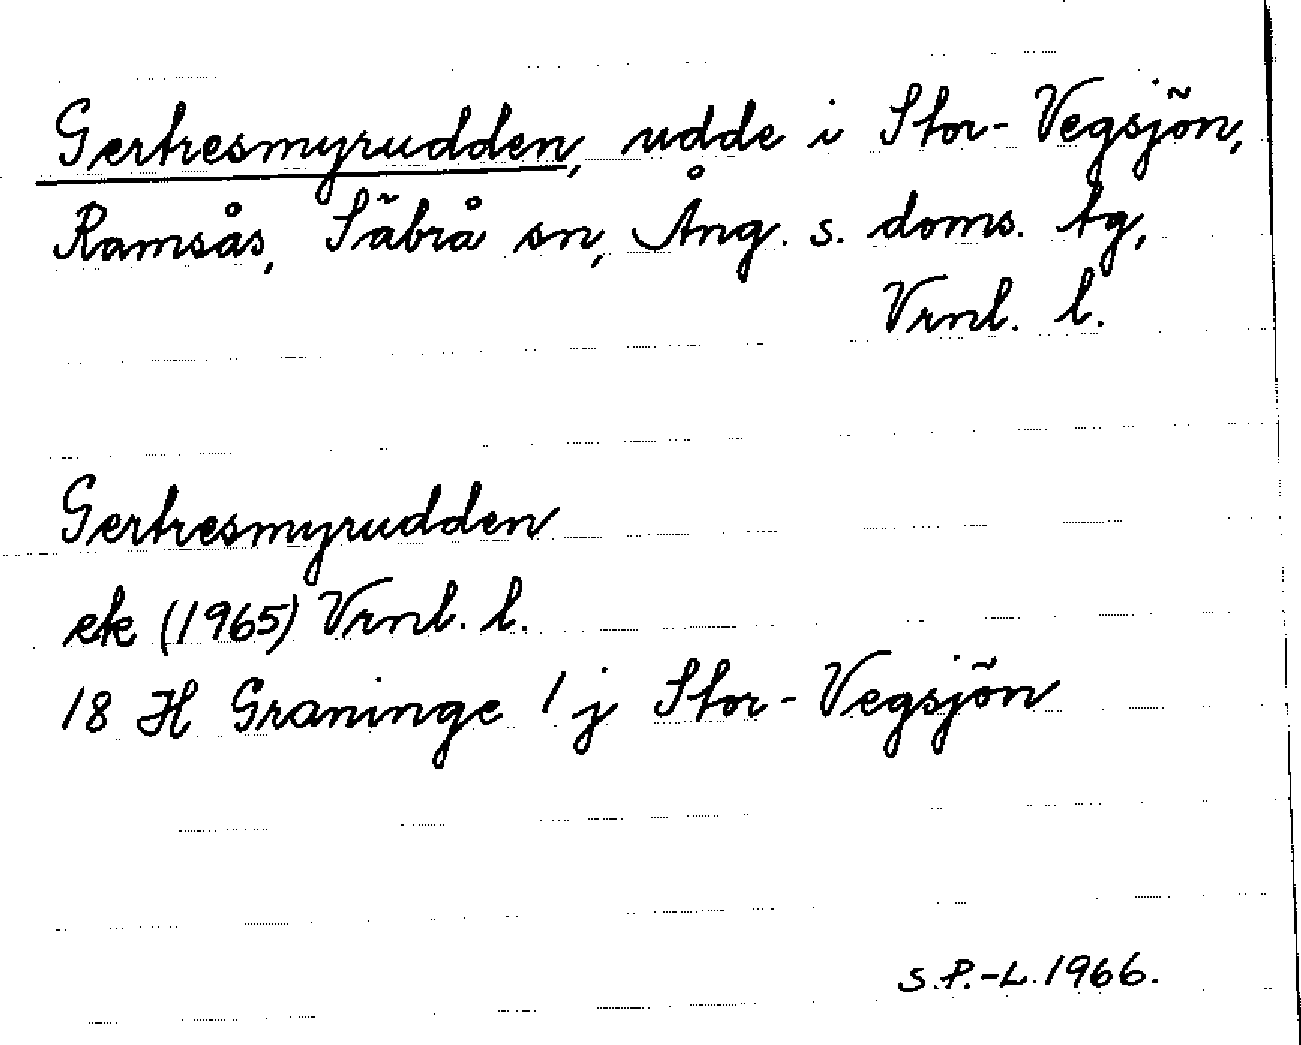 Gertresmyrudden, udde i Stor-Vegsjön,
Ramsås, Säbrå sn, Ång. s. doms. tg,
Vrnl. l.
Gertresmyrudden
ek (1965) Vrnl. l.
18 H Graninge 1 j Stor-Vegsjön
S.P.-L.1966.